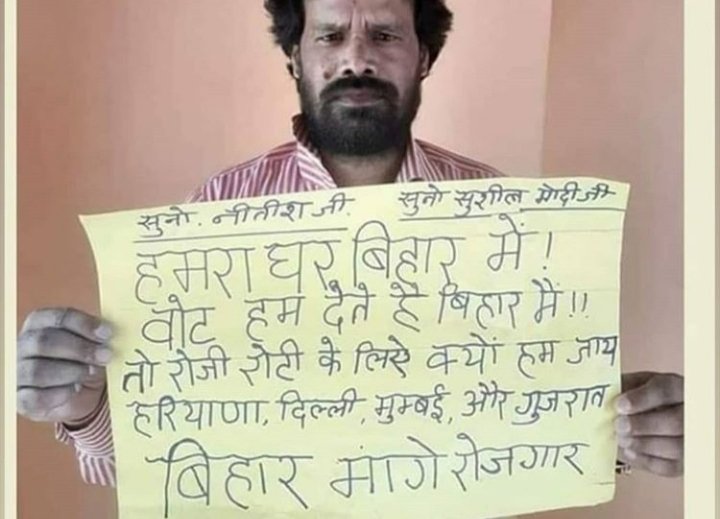 सुनो. नीतीश जी. सुनो सुशील मोदी जी
हमरा घर बिहार में!
वोट हम देते है बिहार में!!
तो रोजी रोटी के लिए क्यों हम जाय
हरियाणा, दिल्ली, मुम्बई, और गुजरात
बिहार मांगे रोजगार